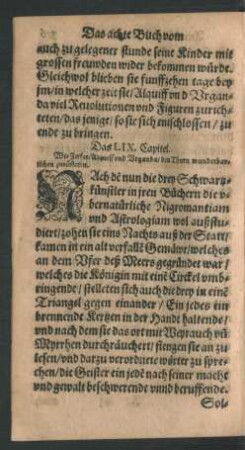 Das achte Buch vom
auch zu gelegener stunde seine Kinder mit
grossen freuwden wider bekommen würde.
Gleichwol blieben sie funffzehen tage bey
jm/ in welcher zeit sie/ Alquiff vnd Vrgan-
da viel Reuolutionen vnd Figuren zurich-
teten/ das jenige/ so sie sich entschlossen/ zu
ende zu bringen.
Das LIX. Capitel.
Wie Zirfea/ Alquiff vnd Vrganda/ den Thurn wunderbar-
lichen
NAch dē nun die drey Schwartz-
künstler in jren Büchern die v-
bernatürliche Nigromantiam
vnd Astrologiam wol auß stu-
diert/ zohen sie eins Nachts auß der Statt/
kamen in ein alt verfallē Gemäwr/ welches
an dem Vfer deß Meers gegründet war/
welches die Königin mit einē Circkel vmb-
ringende/ stelleten sich auch die drey in einē
Triangel gegen einander/ Ein jedes ein
brennende Kertzen in der Handt haltende/
vnd nach dem sie das ort mit Weyrauch vñ
Myrrhen durchräuchert/ fiengen sie an zu
lesen/ vnd darzu verordnete wörter zu spre-
chen/ die Geister ein jedē nach seiner macht
vnd gewalt beschwerende vnnd beruffende.
Sol-